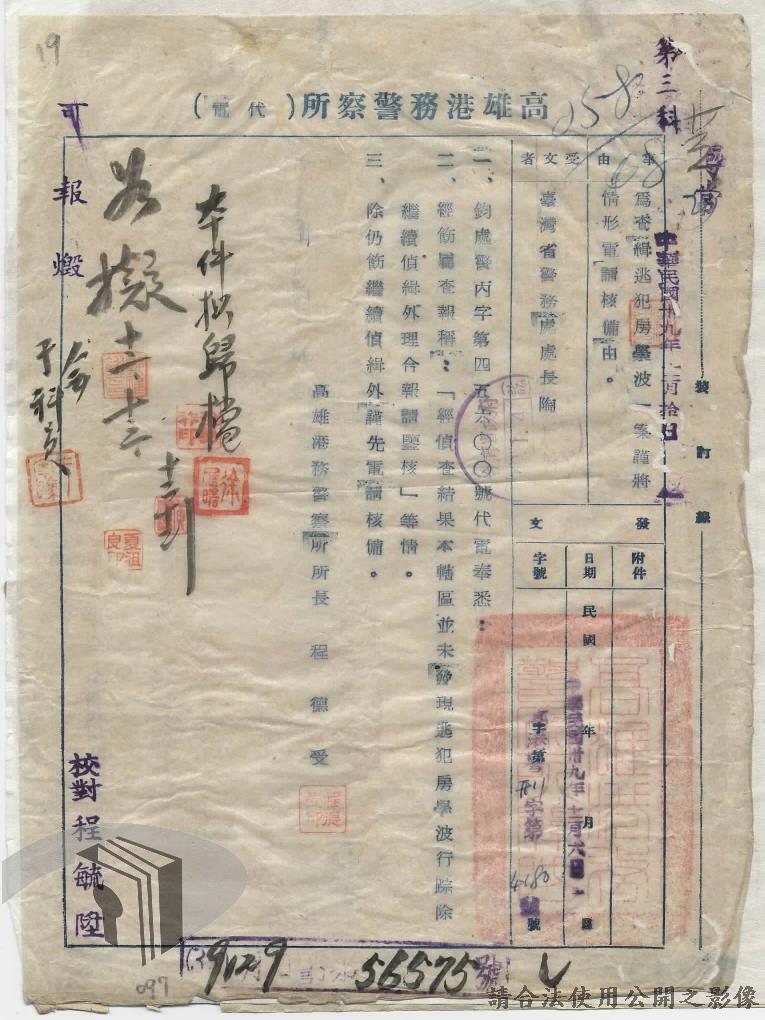 19
第三科
尋常
058
中華民國卅九年十二月拾日
裝訂線
高雄港務警察所(代電)
事由
為查緝逃犯房學波一案謹將
情形電請核備由。
受文者
臺灣省警務處處長陶
發文
附件
日期
民國 年 月 日
中華民國卅九年十二月六日
字號
字第 號
港警刑字第4680號
一、鈞處警丙字第四五六〇〇號代電奉悉:
二、經飭屬查報稱:「經偵查結果本轄區並未發現逃犯房學波行踪除
繼續偵緝外理合報請鑒核」等情。
三、除仍飭繼續偵緝外謹先電請核備。
高雄港務警察所所長 程德受
本件擬歸檔
徐
如擬
夏祖良
可報燬
校對 程毓陞
9129
56575號
097
請合法使用公開之影像